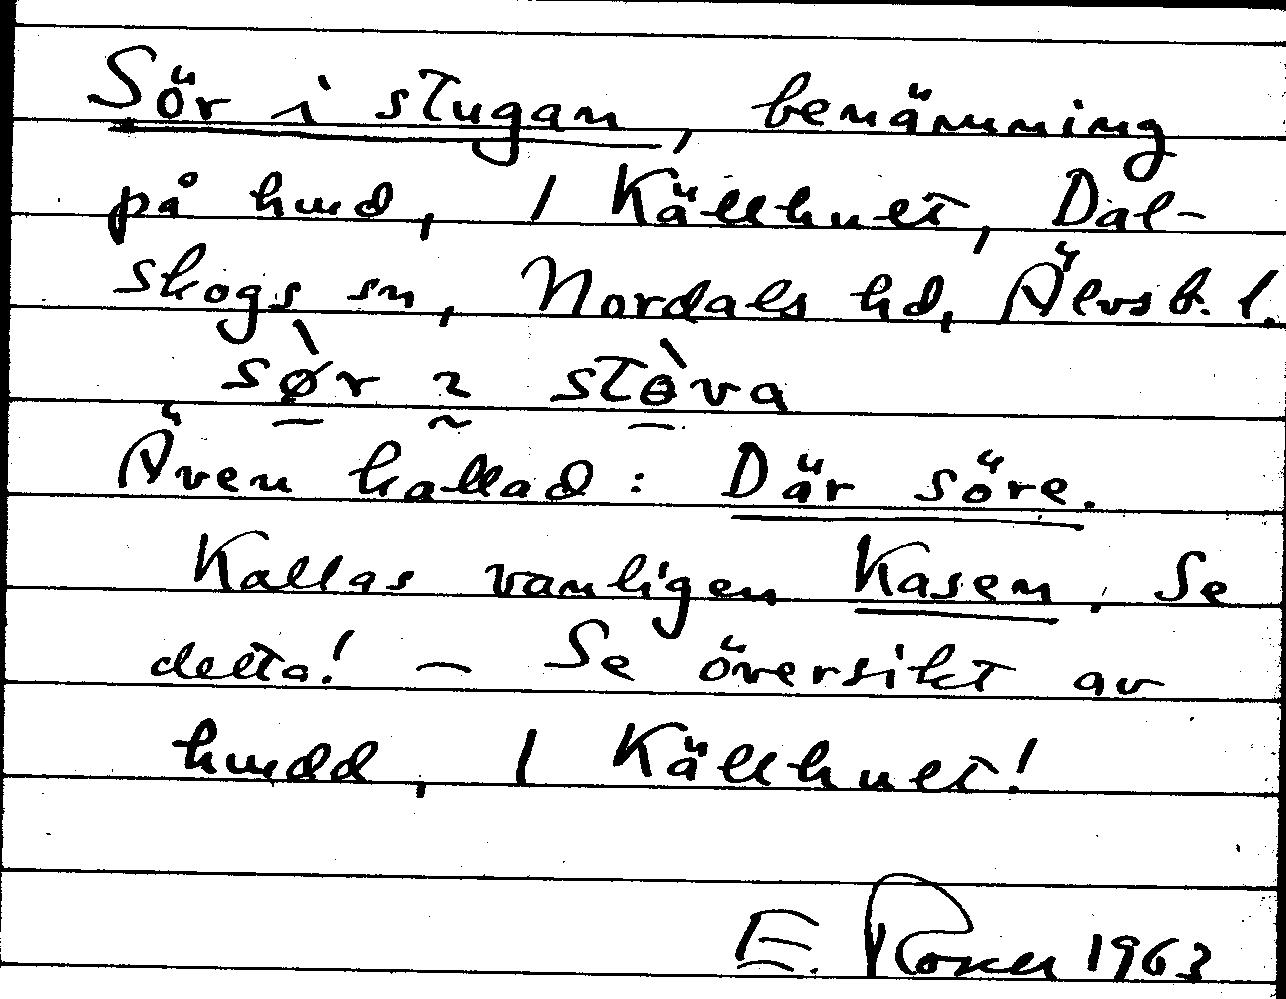 Sör i stugan, benämning
på hmd, 1 Källhult, Dal-
skogs sn, Nordals hd, Älvsb. l.
sø̀r 2 stɵ̀va
Även kallad: Där söre.
Kallas vanligen Kasen. Se
detta! – Se översikt av
hmdd, 1 Källhult!
E. Rosen 1963